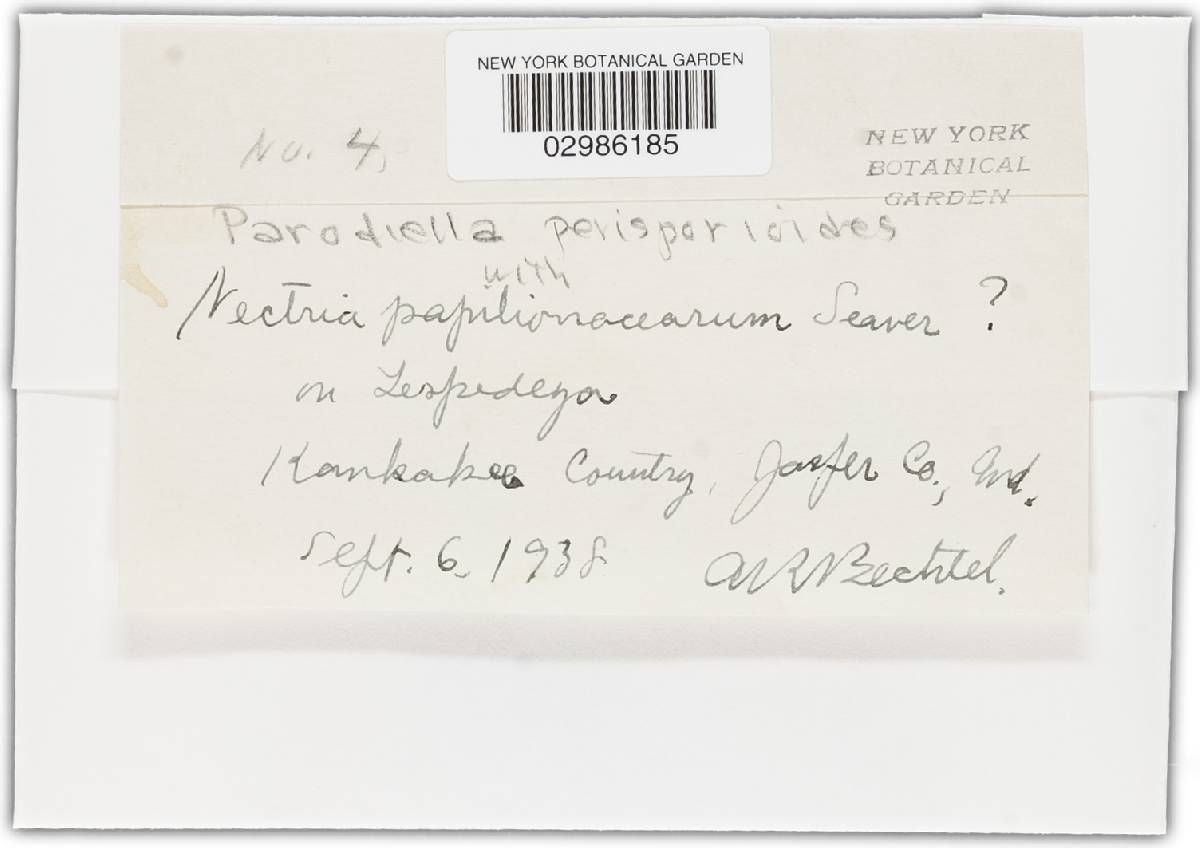 NEW YORK BOTANICAL GARDEN
02986185
No. 4,
NEW YORK
BOTANICAL
GARDEN
Parodiella perisporioides
with
Nectria papilionacearum Seaver ?
on Lespedeza
Kankakee Country, Jasper Co., Ind.
Sept. 6, 1938 ARBechtel.